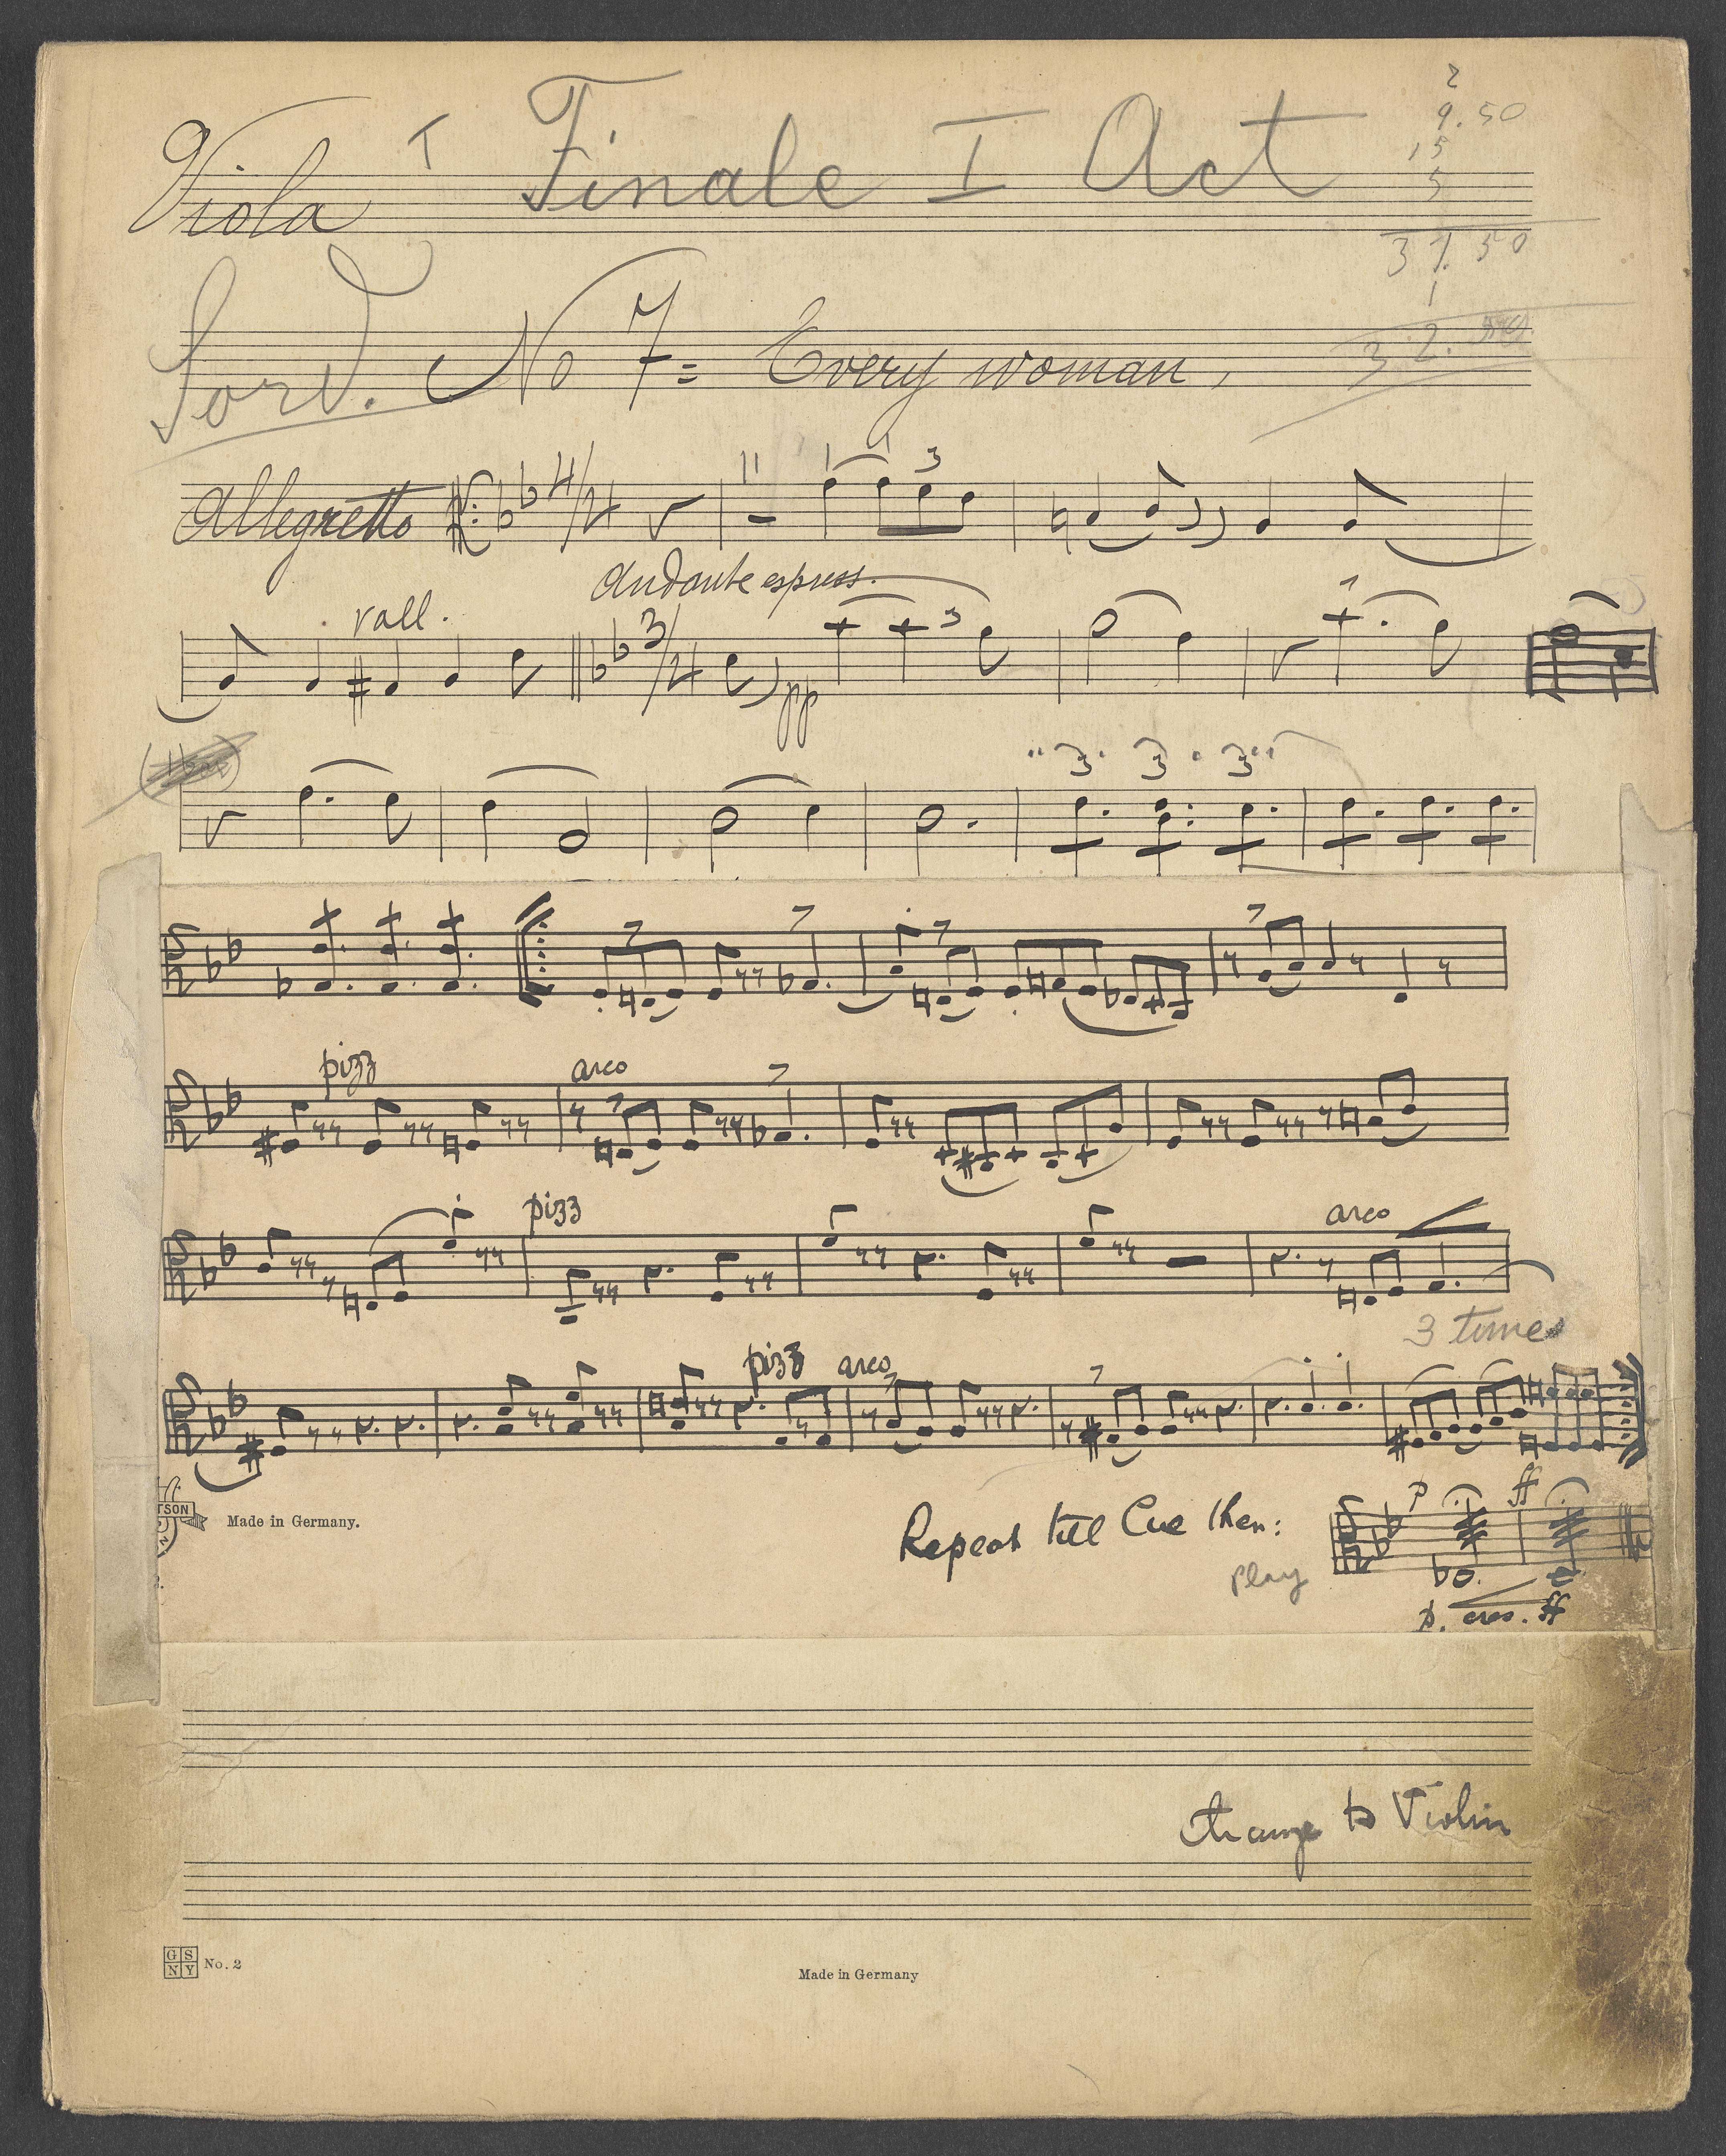 Viola I Finale I Act
2
9.50
15
5
31.50
1
32.50
Sord. No 7= Every woman,
Allegretto 4/4 11 3
Andante espress.
rall. 3/4 pp 3
3 3 3
pizz arco
pizz arco
3 times
pizz arco
TSON Made in Germany.
Repeat till Cue then:
play
p ff
p. cres. ff
change to Violin
GS
NY No. 2 Made in Germany